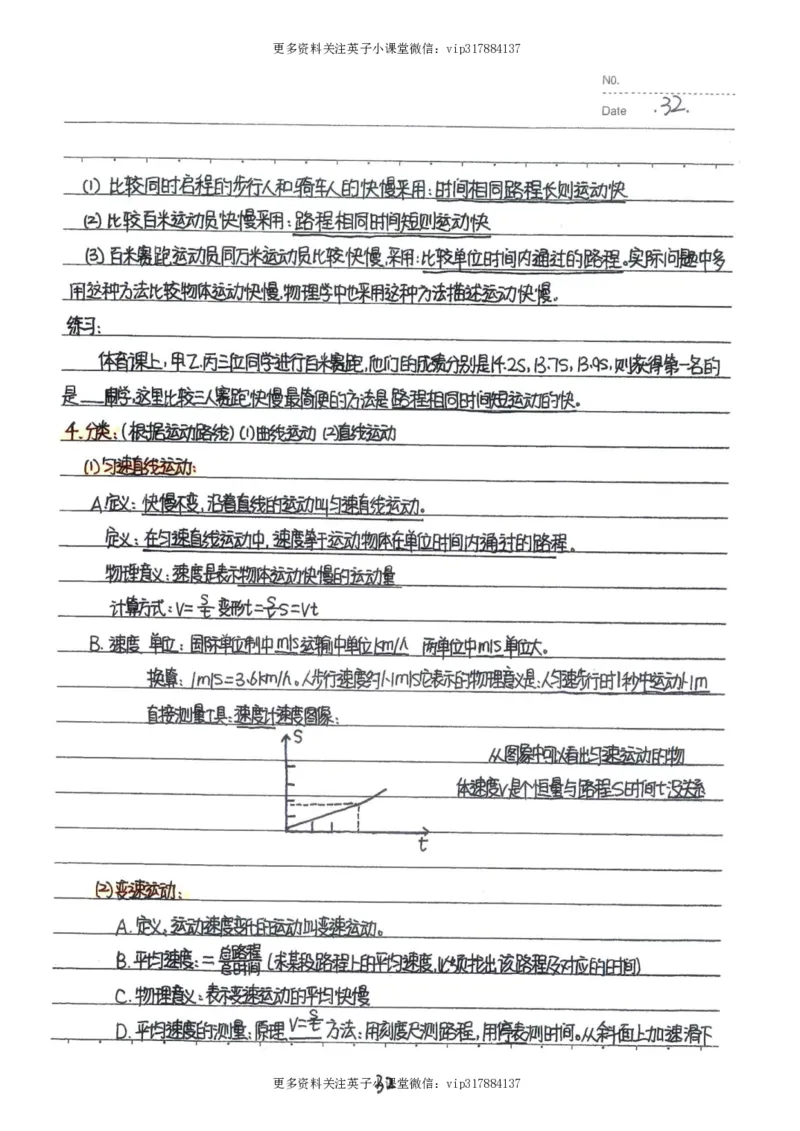 更多资料关注英子小课堂微信：vip317884137
N0.
Date .32.
(1) 比较同时启程的步行人和骑车人的快慢采用：时间相同路程长则运动快
(2) 比较百米运动员快慢采用：路程相同时间短则运动快
(3) 百米赛跑运动员同万米运动员比较快慢,采用:比较单位时间内通过的路程。实际问题中多
用这种方法比较物体运动快慢,物理学中也采用这种方法描述运动快慢。
练习:
体育课上,甲.乙.丙三位同学进行百米赛跑,他们的成绩分别是14.2S,13.7S,13.9S,则获得第一名的
是 同学,这里比较三人赛跑快慢最简便的方法是路程相同时间短运动的快。
4.分类:(根据运动路线) (1)曲线运动 (2)直线运动
(1)匀速直线运动:
A.定义: 快慢不变,沿着直线的运动叫匀速直线运动。
定义:在匀速直线运动中,速度等于运动物体在单位时间内通过的路程。
物理意义:速度是表示物体运动快慢的运动量
计算方式:V=S/t 变形t=S/v S=Vt
B. 速度 单位: 国际单位制中m/s运输中单位km/h 两单位中m/s单位大。
换算: 1m/s=3.6km/h。人步行速度约1.1m/s它表示的物理意义是:人匀速步行时1秒中运动1.1m
直接测量工具:速度计速度图象:
S
从图象中可以看出匀速运动的物
体速度V是个恒量与路程S时间t没关系
t
(2)变速运动:
A.定义、运动速度变化的运动叫变速运动。
B.平均速度:=总路程/总时间 (求某段路程上的平均速度,必须找出该路程及对应的时间)
C.物理意义:表示变速运动的平均快慢
D.平均速度的测量:原理 V=S/t 方法:用刻度尺测路程,用停表测时间。从斜面上加速滑下
更多资料关注英子小课堂微信：vip317884137
32